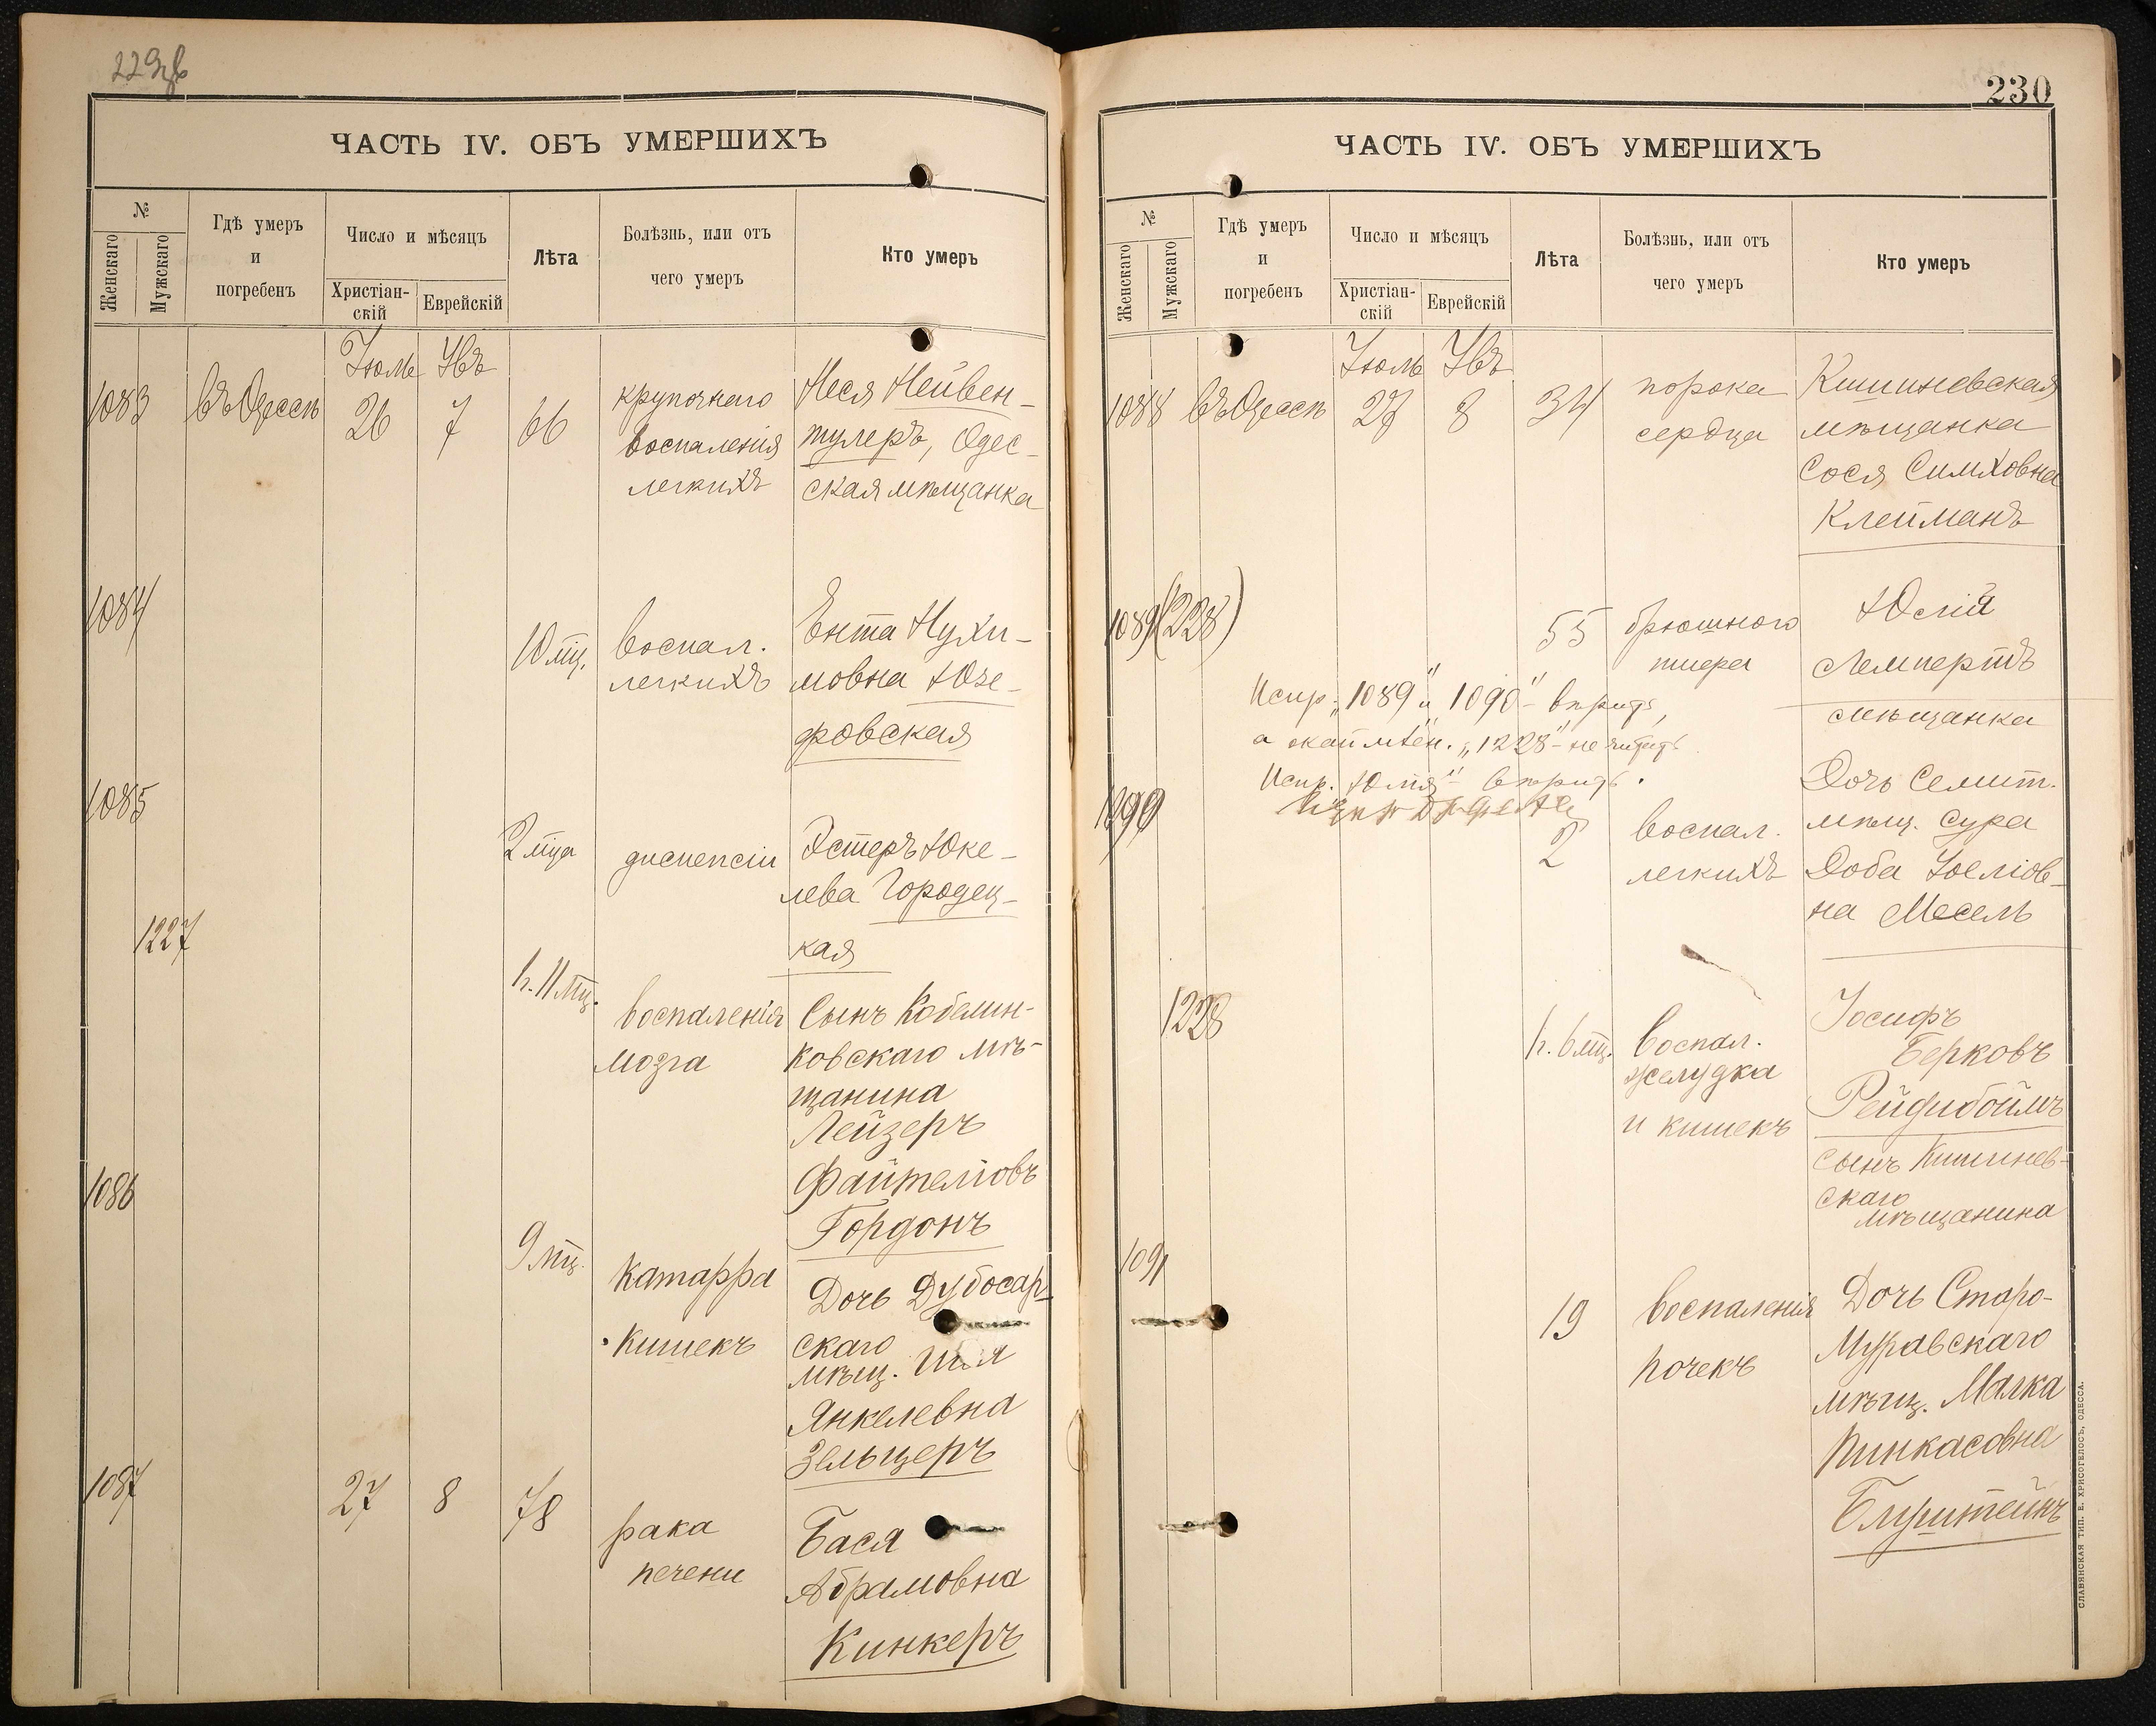 229об
ЧАСТЬ IV. ОБЪ УМЕРШИХЪ
№
Женскаго
Мужскаго
Гдѣ умеръ
и
погребенъ
Число и мѣсяцъ
Христіан-
скій
Еврейскій
Лѣта
Болѣзнь, или отъ
чего умеръ
Кто умеръ
Іюль
Увъ
1083
въ Одессѣ
26
7
66
крупочнаго
воспаленія
легкихъ
Неся Нейвен-
тулеръ, Одес-
ская мѣщанка
1084
10 мц.
воспал.
легкихъ
Ента Нухи-
мовна Юзе-
фовская
1085
2 мца
диспепсіи
Эстеръ Юке-
лева Городец-
кая
1227
1 г. 11 мц.
воспаленія
мозга
Сынъ Кобелин-
ковскаго мѣ-
щанина
Лейзеръ
Файтелiовъ
Гордонъ
1086
9 мц.
катарра
кишекъ
Дочь Дубосар-
скаго
мѣщ.
Янкелевна
Зельцеръ
1087
27
8
78
рака
печени
Бася
Абрамовна
Кинкеръ
230
ЧАСТЬ IV. ОБЪ УМЕРШИХЪ
№
Женскаго
Мужскаго
Гдѣ умеръ
и
погребенъ
Число и мѣсяцъ
Христіан-
скій
Еврейскій
Лѣта
Болѣзнь, или отъ
чего умеръ
Кто умеръ
Іюль
Увъ
1088
въ Одессѣ
27
8
34
порока
сердца
Кишиневская
мѣщанка
Сося Симховна
Клейманъ
1089
(1228)
55
брюшного
тифа
Юлія
Лемпертъ
мѣщанка
Испр. „1089" и „1090" - вѣрить,
а окаймлен. „1228" - не читать
Испр. „Юлія" вѣрить.
1090
2
воспал.
легкихъ
Дочь Семит.
мѣщ. Сура
Доба Іоелiов-
на Месель
1228
1 г. 6 мц.
воспал.
желудка
и кишекъ
Іосифъ
Берковъ
Рейдибоймъ
сынъ Кишинев-
скаго
мѣщанина
1091
19
воспаленія
почекъ
Дочь Старо-
Муравскаго
мѣщ. Малка
Пинкасовна
Блуштейнъ
СЛАВЯНСКАЯ ТИП. Е. ХРИСОГЕЛОСЪ, ОДЕССА.